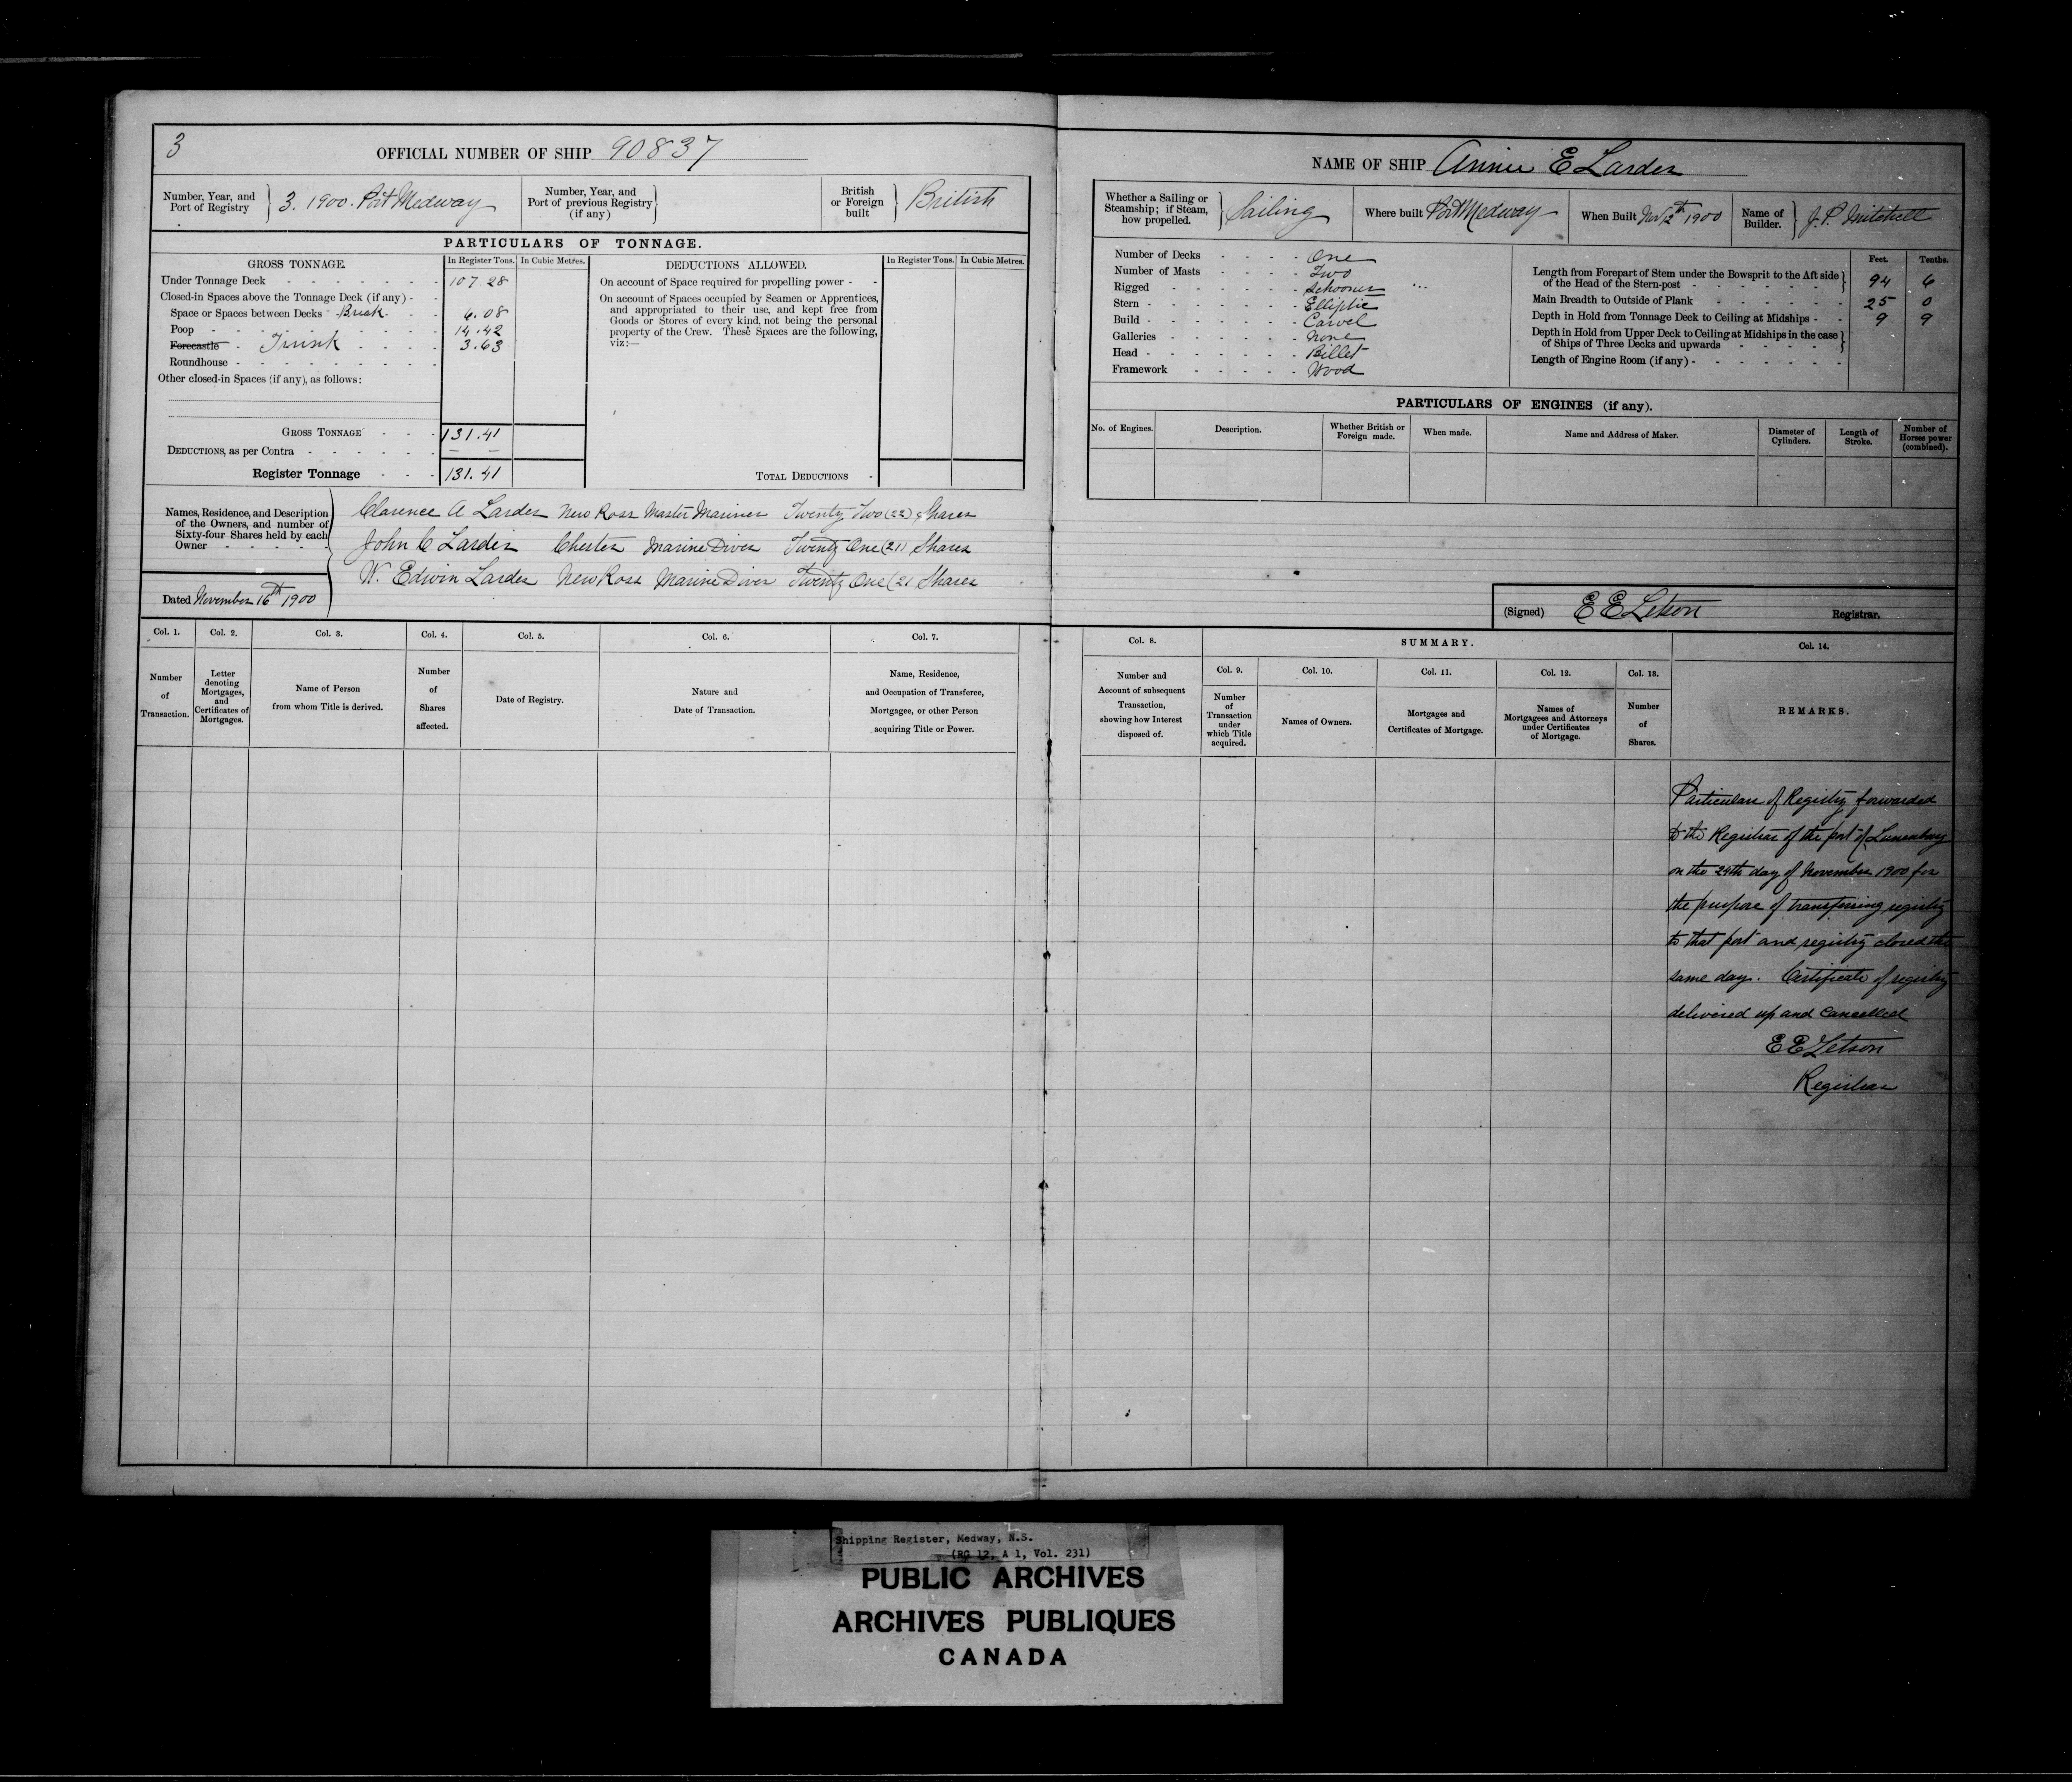 3
OFFICIAL NUMBER OF SHIP 90837
Number, Year, and Port of Registry } 3. 1900. Port Medway
Number, Year, and Port of previous Registry (if any) }
British or Foreign built } British
PARTICULARS OF TONNAGE.
GROSS TONNAGE.
In Register Tons. In Cubic Metres.
Under Tonnage Deck - - - - - 107.28
Closed-in Spaces above the Tonnage Deck (if any) - -
Space or Spaces between Decks - Break - - 6.08
Poop - - - - - 14.42
Forecastle - Trunk - - - - 3.63
Roundhouse - - - - -
Other closed-in Spaces (if any), as follows:
GROSS TONNAGE - - - 131.41
DEDUCTIONS, as per Contra - - - - - — —
Register Tonnage - - - 131.41
DEDUCTIONS ALLOWED.
In Register Tons. In Cubic Metres.
On account of Space required for propelling power - -
On account of Spaces occupied by Seamen or Apprentices,
and appropriated to their use, and kept free from
Goods or Stores of every kind, not being the personal
property of the Crew. These Spaces are the following,
viz:—
TOTAL DEDUCTIONS -
Names, Residence, and Description
of the Owners, and number of
Sixty-four Shares held by each
Owner - - - - -
Clarence A Larder New Ross Master Mariner Twenty Two (22) Shares
John C Larder Chester Marine Diver Twenty One (21) Shares
W. Edwin Larder New Ross Marine Diver Twenty One (21 Shares
Dated November 16th 1900
Col. 1. Col. 2. Col. 3. Col. 4. Col. 5. Col. 6. Col. 7.
Number of Transaction.
Letter denoting Mortgages, and Certificates of Mortgages.
Name of Person from whom Title is derived.
Number of Shares affected.
Date of Registry.
Nature and Date of Transaction.
Name, Residence, and Occupation of Transferee, Mortgagee, or other Person acquiring Title or Power.
NAME OF SHIP Annie E Larder
Whether a Sailing or Steamship; if Steam, how propelled. } Sailing
Where built Port Medway
When Built Nov 12th 1900
Name of Builder. } J. P. Mitchell
Number of Decks - - - - One
Number of Masts - - - - Two
Rigged - - - - - Schooner
Stern - - - - - - Elliptic
Build - - - - - - Carvel
Galleries - - - - - None
Head - - - - - - Billet
Framework - - - - - Wood
Feet. Tenths.
Length from Forepart of Stem under the Bowsprit to the Aft side
of the Head of the Stern-post - - - - - - } 94 6
Main Breadth to Outside of Plank - - - - - 25 0
Depth in Hold from Tonnage Deck to Ceiling at Midships - - 9 9
Depth in Hold from Upper Deck to Ceiling at Midships in the case
of Ships of Three Decks and upwards - - - - - }
Length of Engine Room (if any) - - - - - -
PARTICULARS OF ENGINES (if any).
No. of Engines. Description. Whether British or Foreign made. When made. Name and Address of Maker. Diameter of Cylinders. Length of Stroke. Number of Horses power (combined).
(Signed) E E Letson Registrar.
Col. 8. SUMMARY. Col. 14.
Col. 9. Col. 10. Col. 11. Col. 12. Col. 13.
Number and Account of subsequent Transaction, showing how Interest disposed of.
Number of Transaction under which Title acquired.
Names of Owners.
Mortgages and Certificates of Mortgage.
Names of Mortgagees and Attorneys under Certificates of Mortgage.
Number of Shares.
REMARKS.
Particulars of Registry forwarded
to the Registrar of the port of Lunenburg
on the 29th day of November 1900 for
the purpose of transferring registry
to that port and registry closed the
same day. Certificate of registry
delivered up and cancelled
E E Letson
Registrar
Shipping Register, Medway, N.S.
(RG 12, A 1, Vol. 231)
PUBLIC ARCHIVES
ARCHIVES PUBLIQUES
CANADA